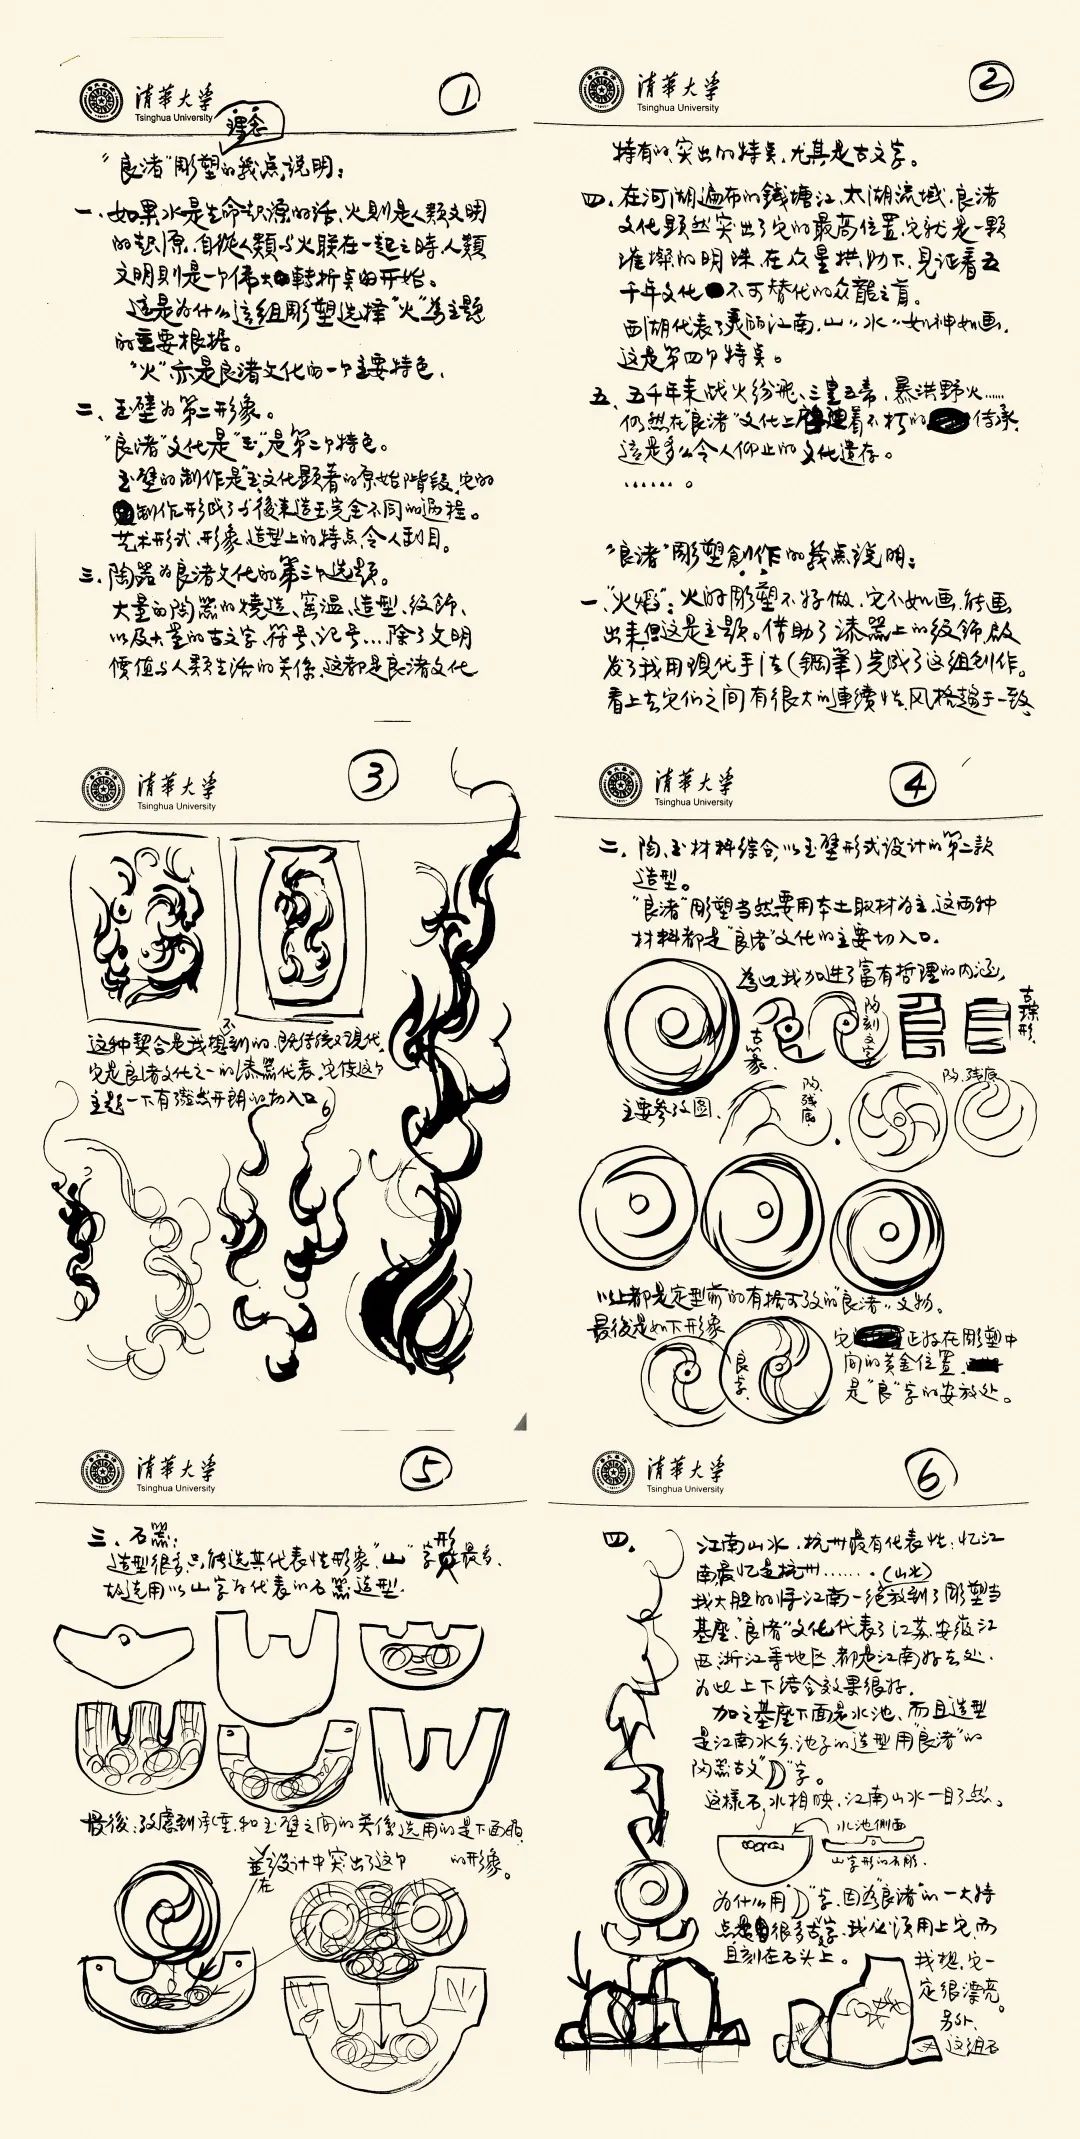 清華大学
Tsinghua University
1
理念
“良渚”彫塑的幾点説明：
一、如果水是生命起源的话、火則是人類文明
的起源，自從人類与火联在一起之時，人類
文明則是一个偉大轉折点的开始。
這是为什么這組彫塑选择“火”為主題
的重要根据。
“火”亦是良渚文化的一个主要特色，
二、玉璧为第二形象。
“良渚”文化是“玉”，是第二个特色。
玉璧的制作是玉文化顕著的原始階段，它的
制作形成了与後来造玉完全不同的過程。
艺术形式、形象、造型上的特点，令人刮目。
三、陶器为良渚文化的第三个选题。
大量的陶器的燒造、窑温、造型、纹飾，
以及大量的古文字、符号、记号…除了文明
價值与人類生活的関係，这都是良渚文化
清華大学
Tsinghua University
2
特有的、突出的特点，尤其是古文字。
四、在河湖遍布的錢塘江、太湖流域，良渚
文化顕然突出了它的最高位置，它就是一颗
璀璨的明珠，在众星拱助下，見证着五
千年文化不可替代的众龍之首。
西湖代表了美丽江南，山“水”如神如画，
这是第四个特点。
五、五千年来战火纷飛、三皇五帝，暴洪野火……
仍然在“良渚”文化上着不朽的传承，
這是多么令人仰止的文化遺存。
……。
“良渚”彫塑創作的幾点说明：
一、“火焰”：火的彫塑不好做，它不如画，能画
出来，但这是主题。借助了漆器上的纹飾，啟
发了我用現代手法（鋼筆）完成了这组创作。
看上去它们之间有很大的連續性，风格趨于一致，
清華大学
Tsinghua University
3
这种契合是我想不到的，既传统又現代，
它是良渚文化之一的漆器代表，它使这个
主题一下有豁然开朗的切入口。
清華大学
Tsinghua University
4
二、陶、玉材料综合，以玉璧形式设计的第二款
造型。
“良渚”彫塑当然要用本土取材为主，这两种
材料都是“良渚”文化的主要切入口，
為此我加進了富有哲理的内涵，
古象，
陶刻文字
古璪形，
主要参考图，
陶，残底
陶，残底
以上都是定型前的有据可考的“良渚”文物。
最後是如下形象
良字，
它正好在彫塑中
间的黄金位置，
是“良”字的安放处。
清華大学
Tsinghua University
5
三、石器：
造型很多，只能选其代表性形象，“山”字形最多，
故选用以山字为代表的石器造型，
最後，考慮到承重，和玉璧之间的关係选用的是下面的
的形象。
並在设计中突出了这个
清華大学
Tsinghua University
6
四、
江南山水，杭州最有代表性，忆江
南最忆是杭州……（山水）
我大胆的将江南一绝放到了彫塑当
基座，“良渚”文化代表了江苏、安徽、江
西、浙江等地区，都是江南好去处，
为此上下结合效果很好，
加之基座下面是水池，而且造型
是江南水乡，池子的造型用“良渚”的
陶器古文“D”字。
这樣石、水相映，江南山水一目了然。
水池側面
山字形的石彫，
为什么用“D”字，因為“良渚”的一大特
点是很多古字，我必须用上它，而
且刻在石头上。
我想，它一
定很漂亮。
另外，
这组石